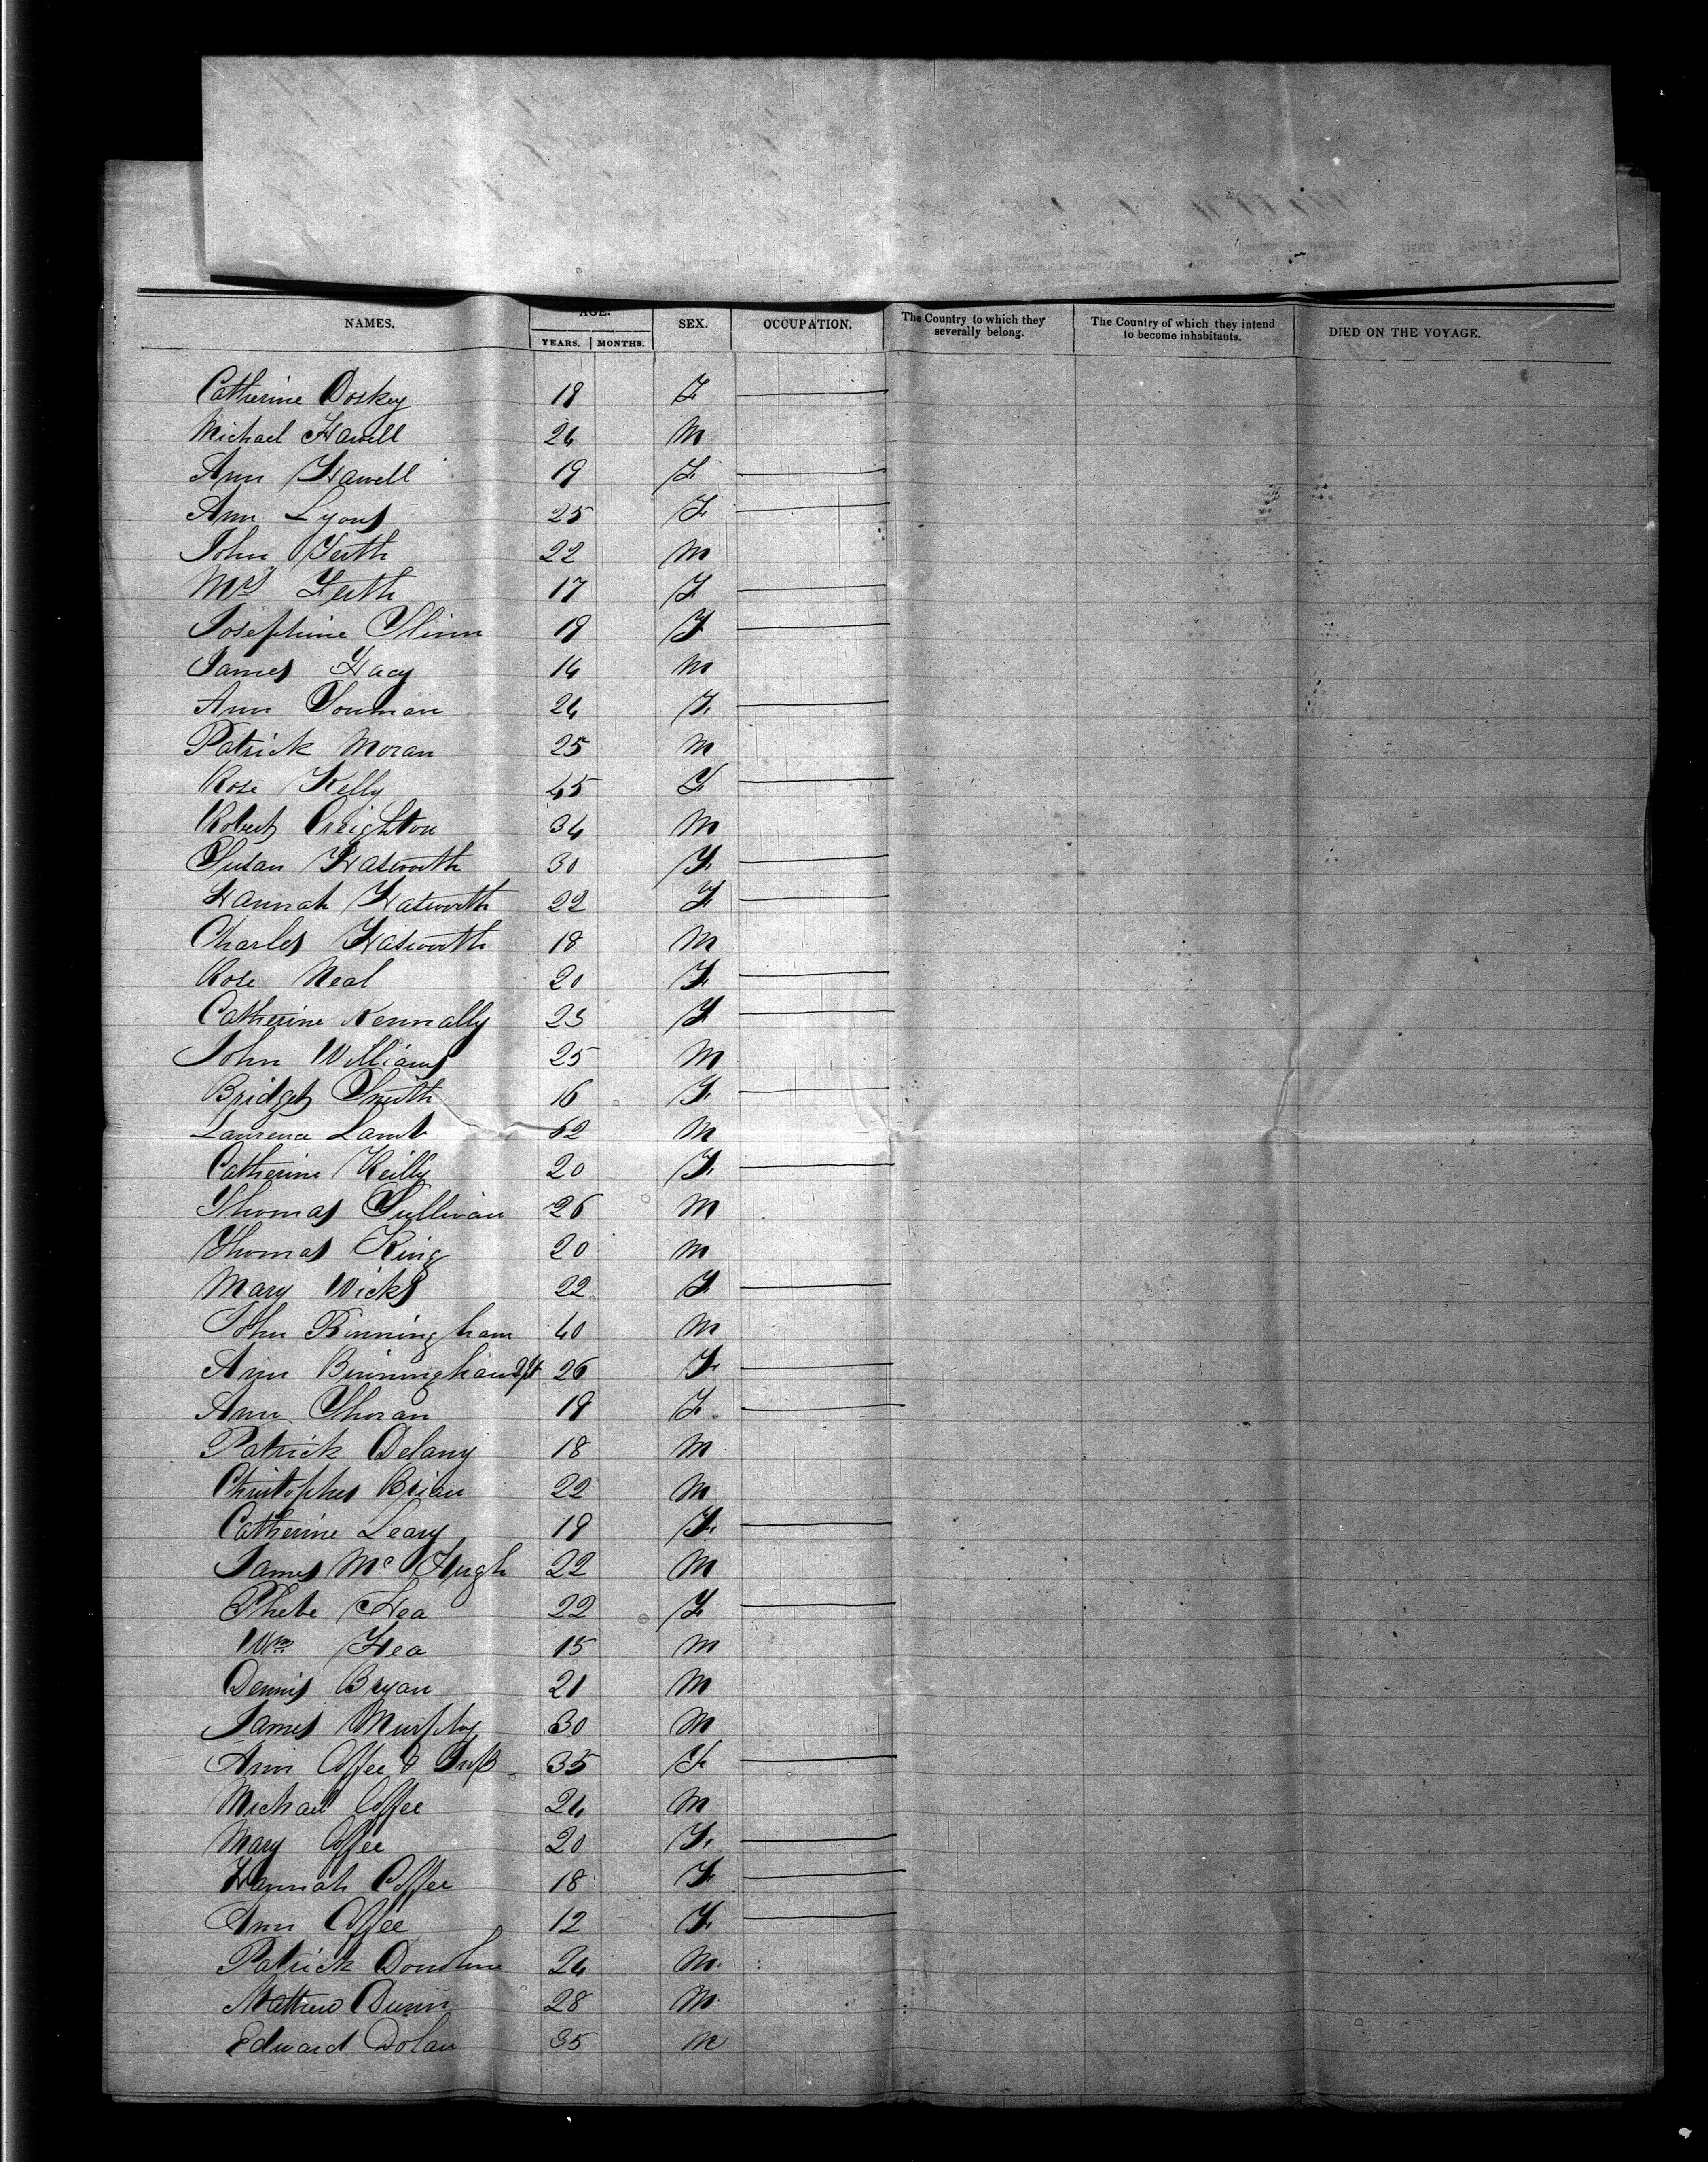 NAMES. AGE. SEX. OCCUPATION. The Country to which they severally belong. The Country of which they intend to become inhabitants. DIED ON THE VOYAGE.
YEARS. MONTHS.
Catherine 19 F
Michael Hawell 24 M
Ann Hawell 19 F
Ann Lyons 25 F
John 22 M
Mrs 17 F
Josephine 19 F
James 14 M
Ann 24 F
Patrick Moran 25 M
Rose Kelly 45 F
Robert Creighton 34 M
Susan Hatworth 30 F
Hannah Hatworth 22 F
Charles Hatworth 18 M
Rose Neal 20 F
Catherine Kennally 23 F
John Williams 25 M
Bridget Smith 16 F
Laurence Lamb 62 M
Catherine Reilly 20 F
Thomas Sullivan 26 M
Thomas King 20 M
Mary Wicks 22 F
John Binningham 40 M
Ann Binningham 26 F
Ann Thoran 19 F
Patrick Delany 18 M
Christopher Brian 22 M
Catherine Leary 19 F
James Mc Hugh 22 M
Phebe Hea 22 F
Wm Hea 15 M
Dennis Bryan 21 M
James Murphy 30 M
Ann Coffee & 35 F
Michael Coffee 24 M
Mary Coffee 20 F
Hannah Coffee 18 F
Ann Coffee 12 F
Patrick Donohue 24 M
Mathew Dunn 28 M
Edward Dolan 35 M